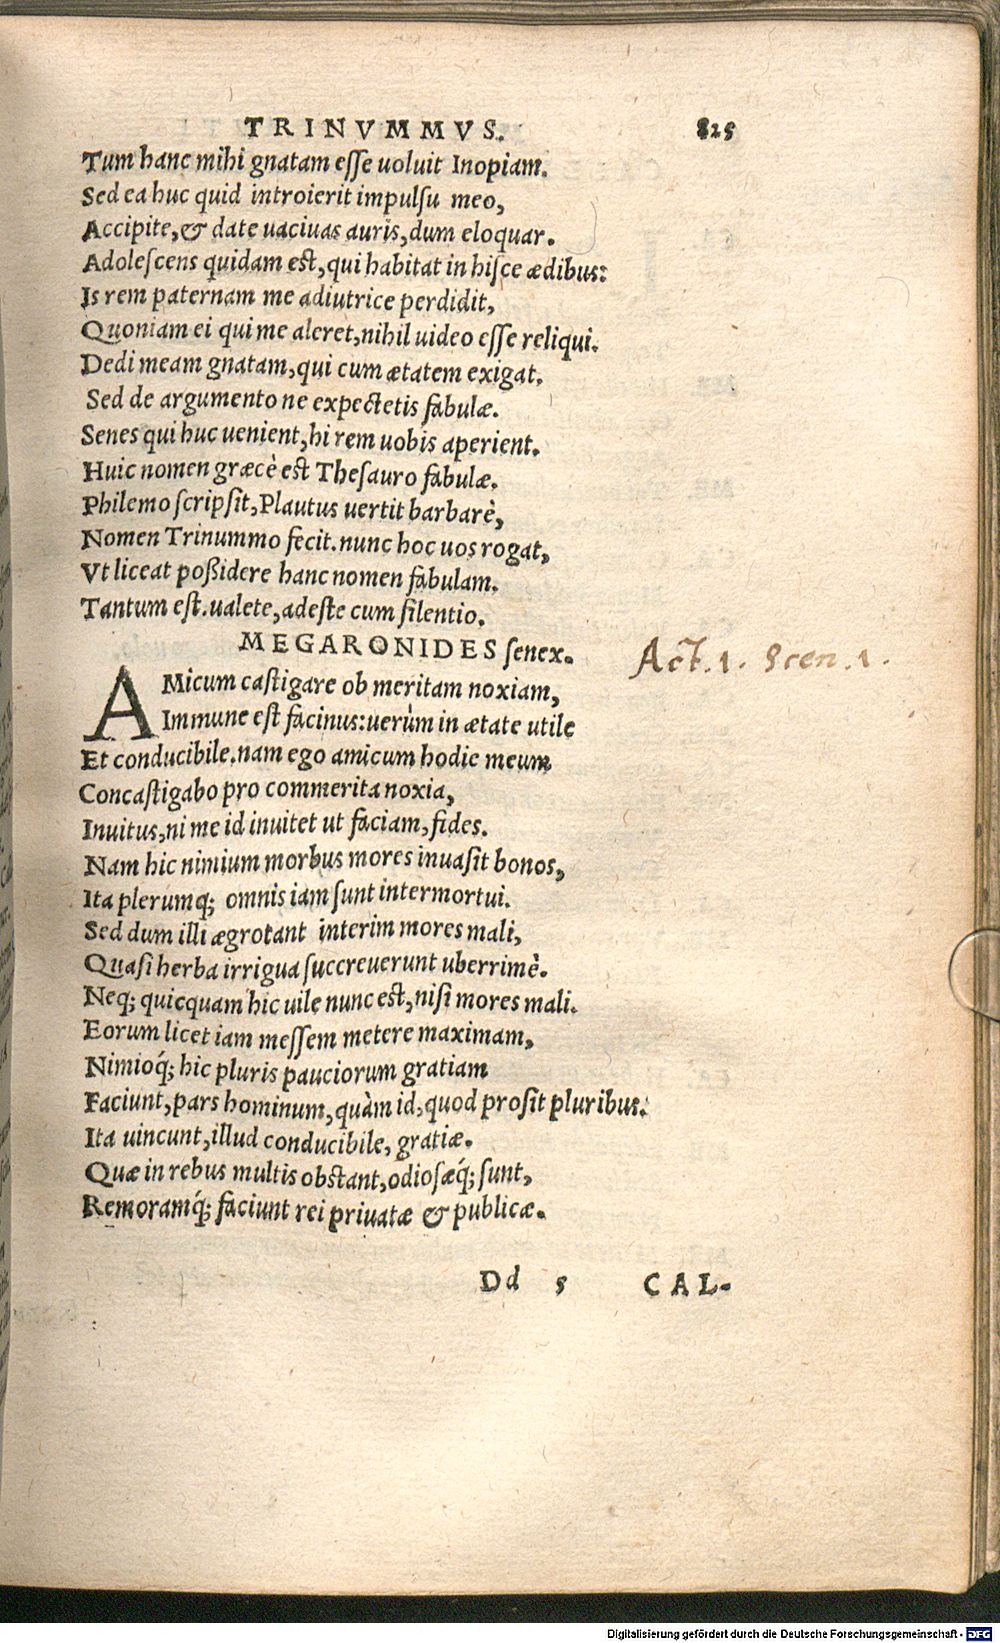 TRINVMMVS. 825
Tum hanc mihi gnatam esse uoluit Inopiam.
Sed ea huc quid introierit impulsu meo,
Accipite, & date uaciuas auris, dum eloquar.
Adolescens quidam est, qui habitat in hisce ædibus:
Is rem paternam me adiutrice perdidit,
Quoniam ei qui me aleret, nihil uideo esse reliqui.
Dedi meam gnatam, qui cum ætatem exigat.
Sed de argumento ne expectetis fabulæ.
Senes qui huc uenient, hi rem uobis aperient.
Huic nomen græcè est Thesauro fabulæ.
Philemo scripsit, Plautus uertit barbarè,
Nomen Trinummo fecit. nunc hoc uos rogat,
Vt liceat poßidere hanc nomen fabulam.
Tantum est. ualete, adeste cum silentio.
MEGARONIDES senex.
Act. 1. Scen. 1.
AMicum castigare ob meritam noxiam,
Immune est facinus: uerùm in ætate utile
Et conducibile. nam ego amicum hodie meum
Concastigabo pro commerita noxia,
Inuitus, ni me id inuitet ut faciam, fides.
Nam hic nimium morbus mores inuasit bonos,
Ita plerumq; omnis iam sunt intermortui.
Sed dum illi ægrotant interim mores mali,
Quasi herba irrigua succreuerunt uberrimè.
Neq; quicquam hic uile nunc est, nisi mores mali.
Eorum licet iam messem metere maximam,
Nimioq́; hic pluris pauciorum gratiam
Faciunt, pars hominum, quàm id, quod prosit pluribus.
Ita uincunt, illud conducibile, gratiæ.
Quæ in rebus multis obstant, odiosæq́; sunt,
Remoramq́; faciunt rei priuatæ & publicæ.
Dd 5 CAL-
Digitalisierung gefördert durch die Deutsche Forschungsgemeinschaft - DFG